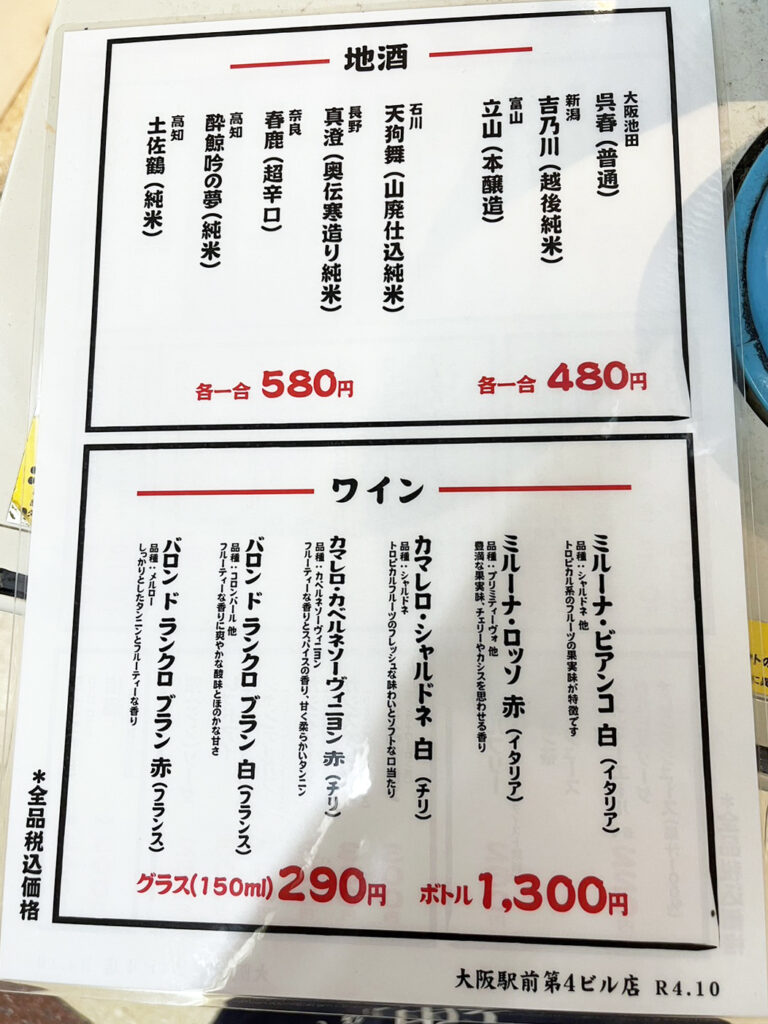 地酒
大阪池田
呉春(普通)
新潟
吉乃川(越後純米)
富山
立山(本醸造)
各一合 480円
石川
天狗舞(山廃仕込純米)
長野
真澄(奥伝寒造り純米)
奈良
春鹿(超辛口)
高知
酔鯨吟の夢(純米)
高知
土佐鶴(純米)
各一合 580円
ワイン
ミルーナ・ビアンコ 白(イタリア)
品種:シャルドネ 他
トロピカル系のフルーツの果実味が特徴です
ミルーナ・ロッソ 赤(イタリア)
品種:プリミティーヴォ 他
豊満な果実味、チェリーやカシスを思わせる香り
カマレロ・シャルドネ 白(チリ)
品種:シャルドネ
トロピカルフルーツのフレッシュな味わいとソフトな口当たり
カマレロ・カベルネソーヴィニヨン 赤(チリ)
品種:カベルネソーヴィニヨン
フルーティーな香りとスパイスの香り、甘く柔らかいタンニン
バロン ド ランクロ ブラン 白(フランス)
品種:コロンバール 他
フルーティーな香りに爽やかな酸味とほのかな甘さ
バロン ド ランクロ ブラン 赤(フランス)
品種:メルロー
しっかりとしたタンニンとフルーティーな香り
グラス(150ml)290円 ボトル1,300円
*全品税込価格
大阪駅前第4ビル店 R4.10